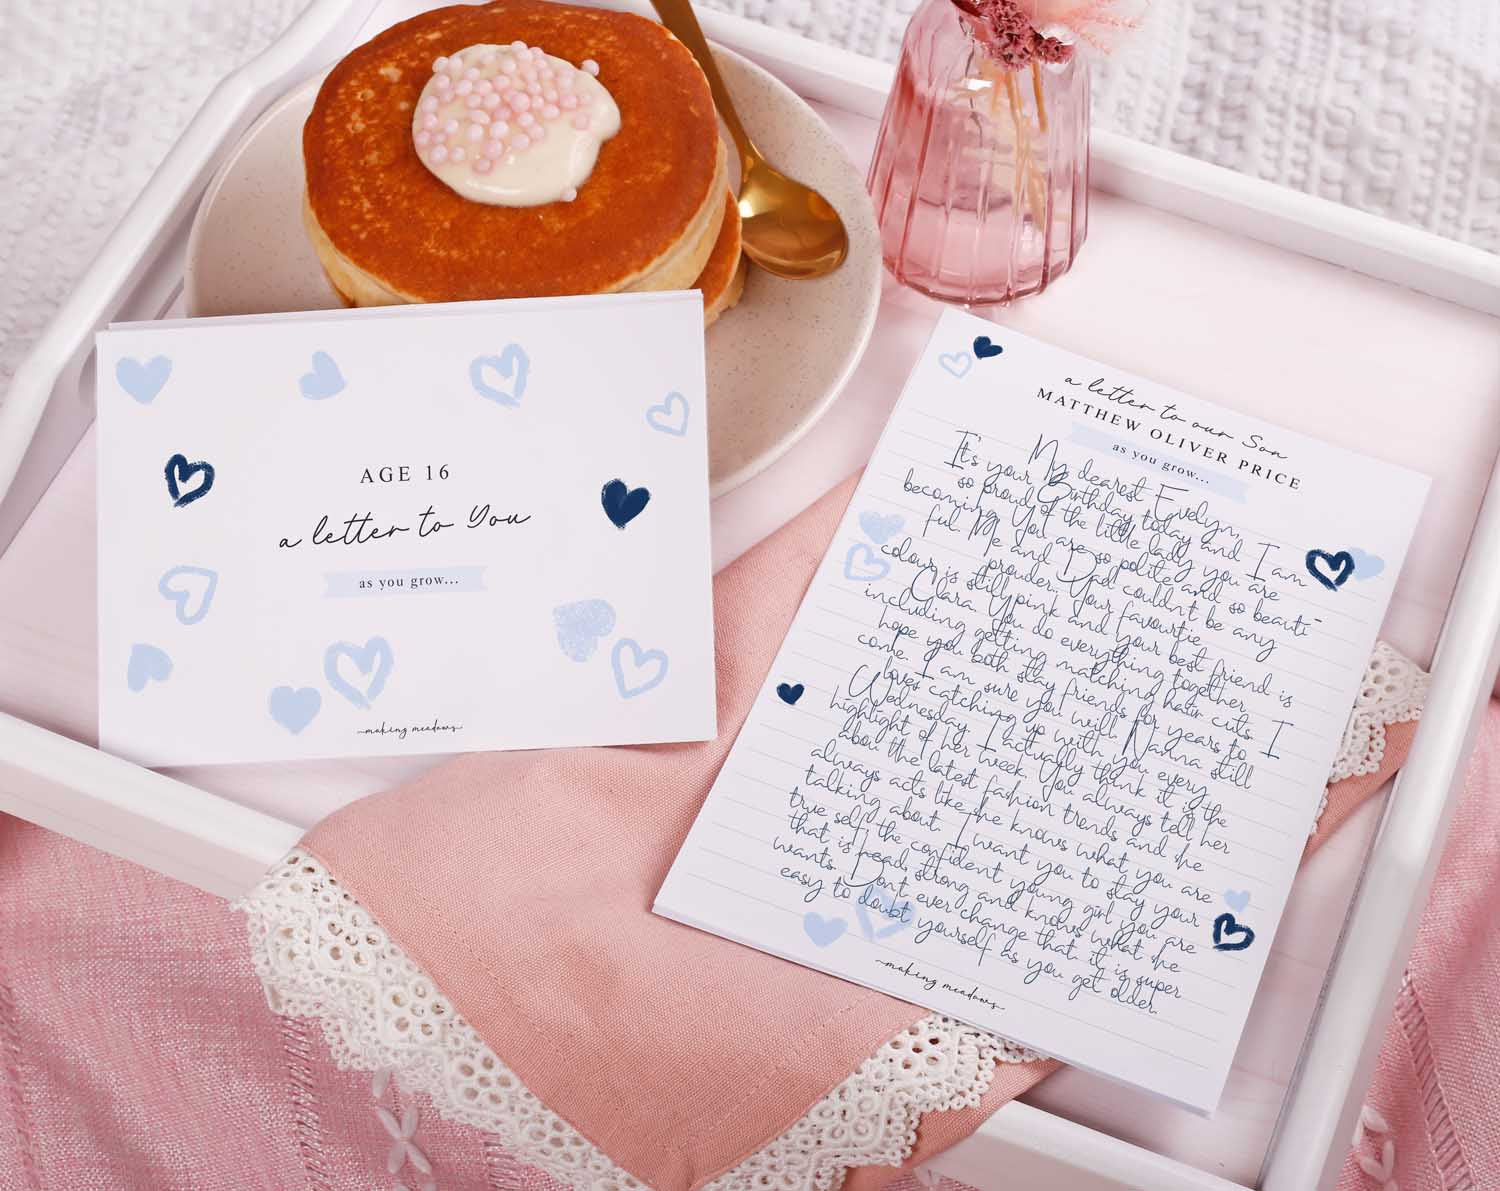 AGE 16
a letter to You
as you grow...
making meadows
a letter to our Son
MATTHEW OLIVER PRICE
as you grow...
My dearest Evelyn,
It's your Birthday today and I am
so proud of the little lady you are
becoming. You are so polite and so beauti-
ful. Me and Dad couldn't be any
prouder. Your favourtie
colour is still pink and your best friend is
Clara. You do everything together
including getting matching hair cuts. I
hope you both stay friends for years to
come. I am sure you will. Nanna still
loves catching up with you every
Wednesday. I actually think it is the
highlight of her week. You always tell her
about the latest fashion trends and she
always acts like she knows what you are
talking about. I want you to stay your
true self, the confident young girl you are
that is head strong and knows what she
wants. Dont ever change that, it is super
easy to doubt yourself as you get older.
making meadows